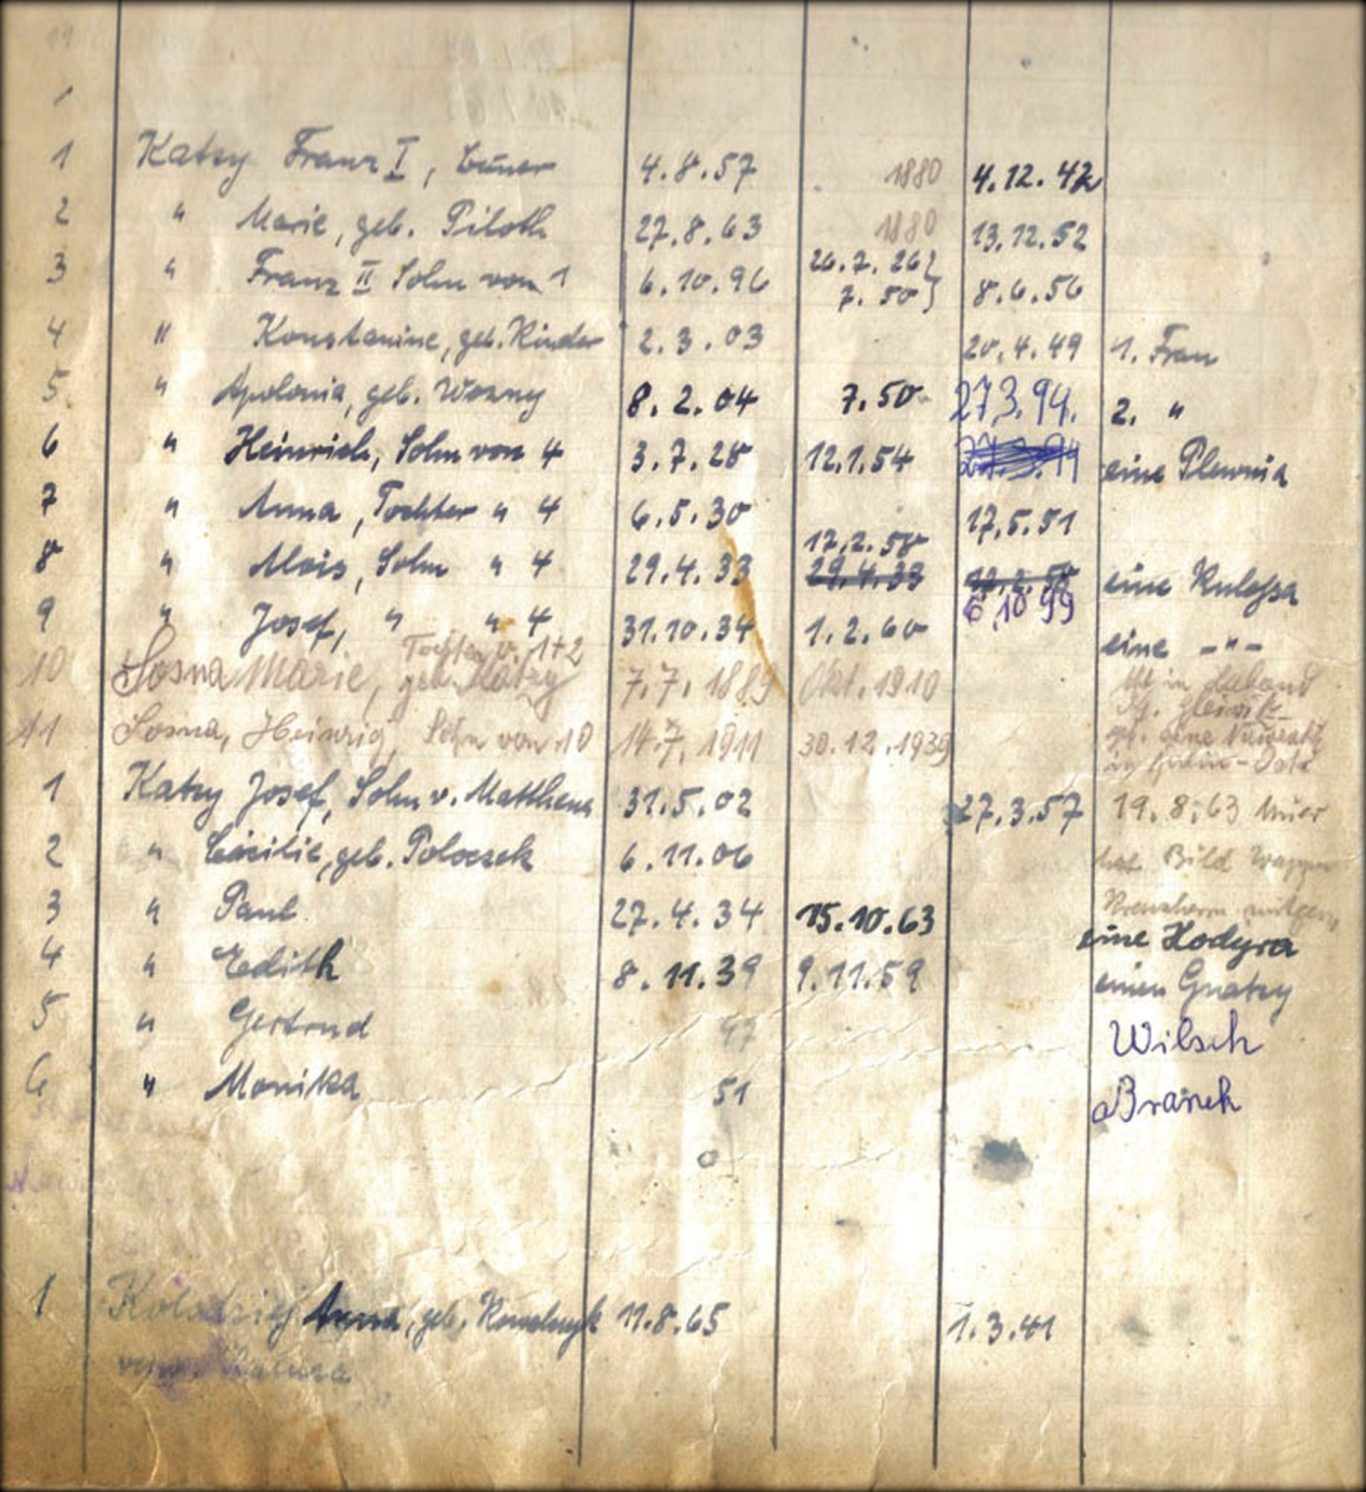 1 Katzy Franz I, 4.8.57 1880 4.12.42
2 " Marie, geb. Piloth 27.8.63 1880 13.12.52
3 " Franz II Sohn von 1 6.10.96 26.7.26 } 7.50 } 8.6.56
4 " Konstanine, geb. Kinder 2.3.03 20.4.49 1. Frau
5 " Apolonia, geb. Wozny 8.2.04 7.50 27.3.94. 2. "
6 " Heinrich, Sohn von 4 3.7.28 12.1.54 eine Plewnia
7 " Anna, Tochter " 4 6.5.30 17.5.51
8 " Alois, Sohn " 4 29.4.33 17.2.58 29.4.33 eine Kulessa
9 " Josef, " " 4 31.10.34 1.2.60 6.10.99 eine -"-
Tochter v. 1+2
10 Sosna Marie, geb. Katzy 7.7.1889 Okt. 1910 in Laband
11 Sosna, Heinrig, Sohn von 10 14.7.1911 30.12.1939 eine
1 Katzy Josef, Sohn v. Mattheus 31.5.02 27.3.57 19.8.63
2 " Cäcilie, geb. Poloczek 6.11.06 hat Bild Wappen
3 " Paul 27.4.34 15.10.63 eine Hodyra
4 " Edith 8.11.39 9.11.59 einen Gnatzy
5 " Gertrud 47 Wilsch
6 " Monika 51 Branek
1 Kolodziej Anna, geb. Kowalczyk 11.8.65 1.3.41